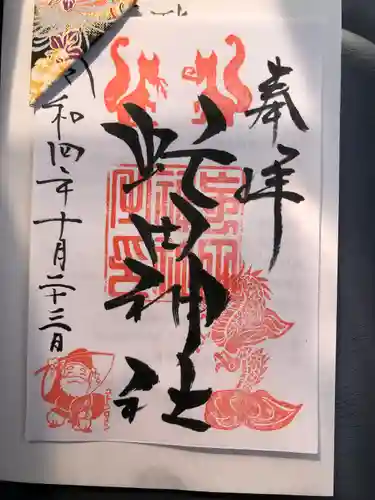 奉拝
虻田神社
令和四年十月二十三日